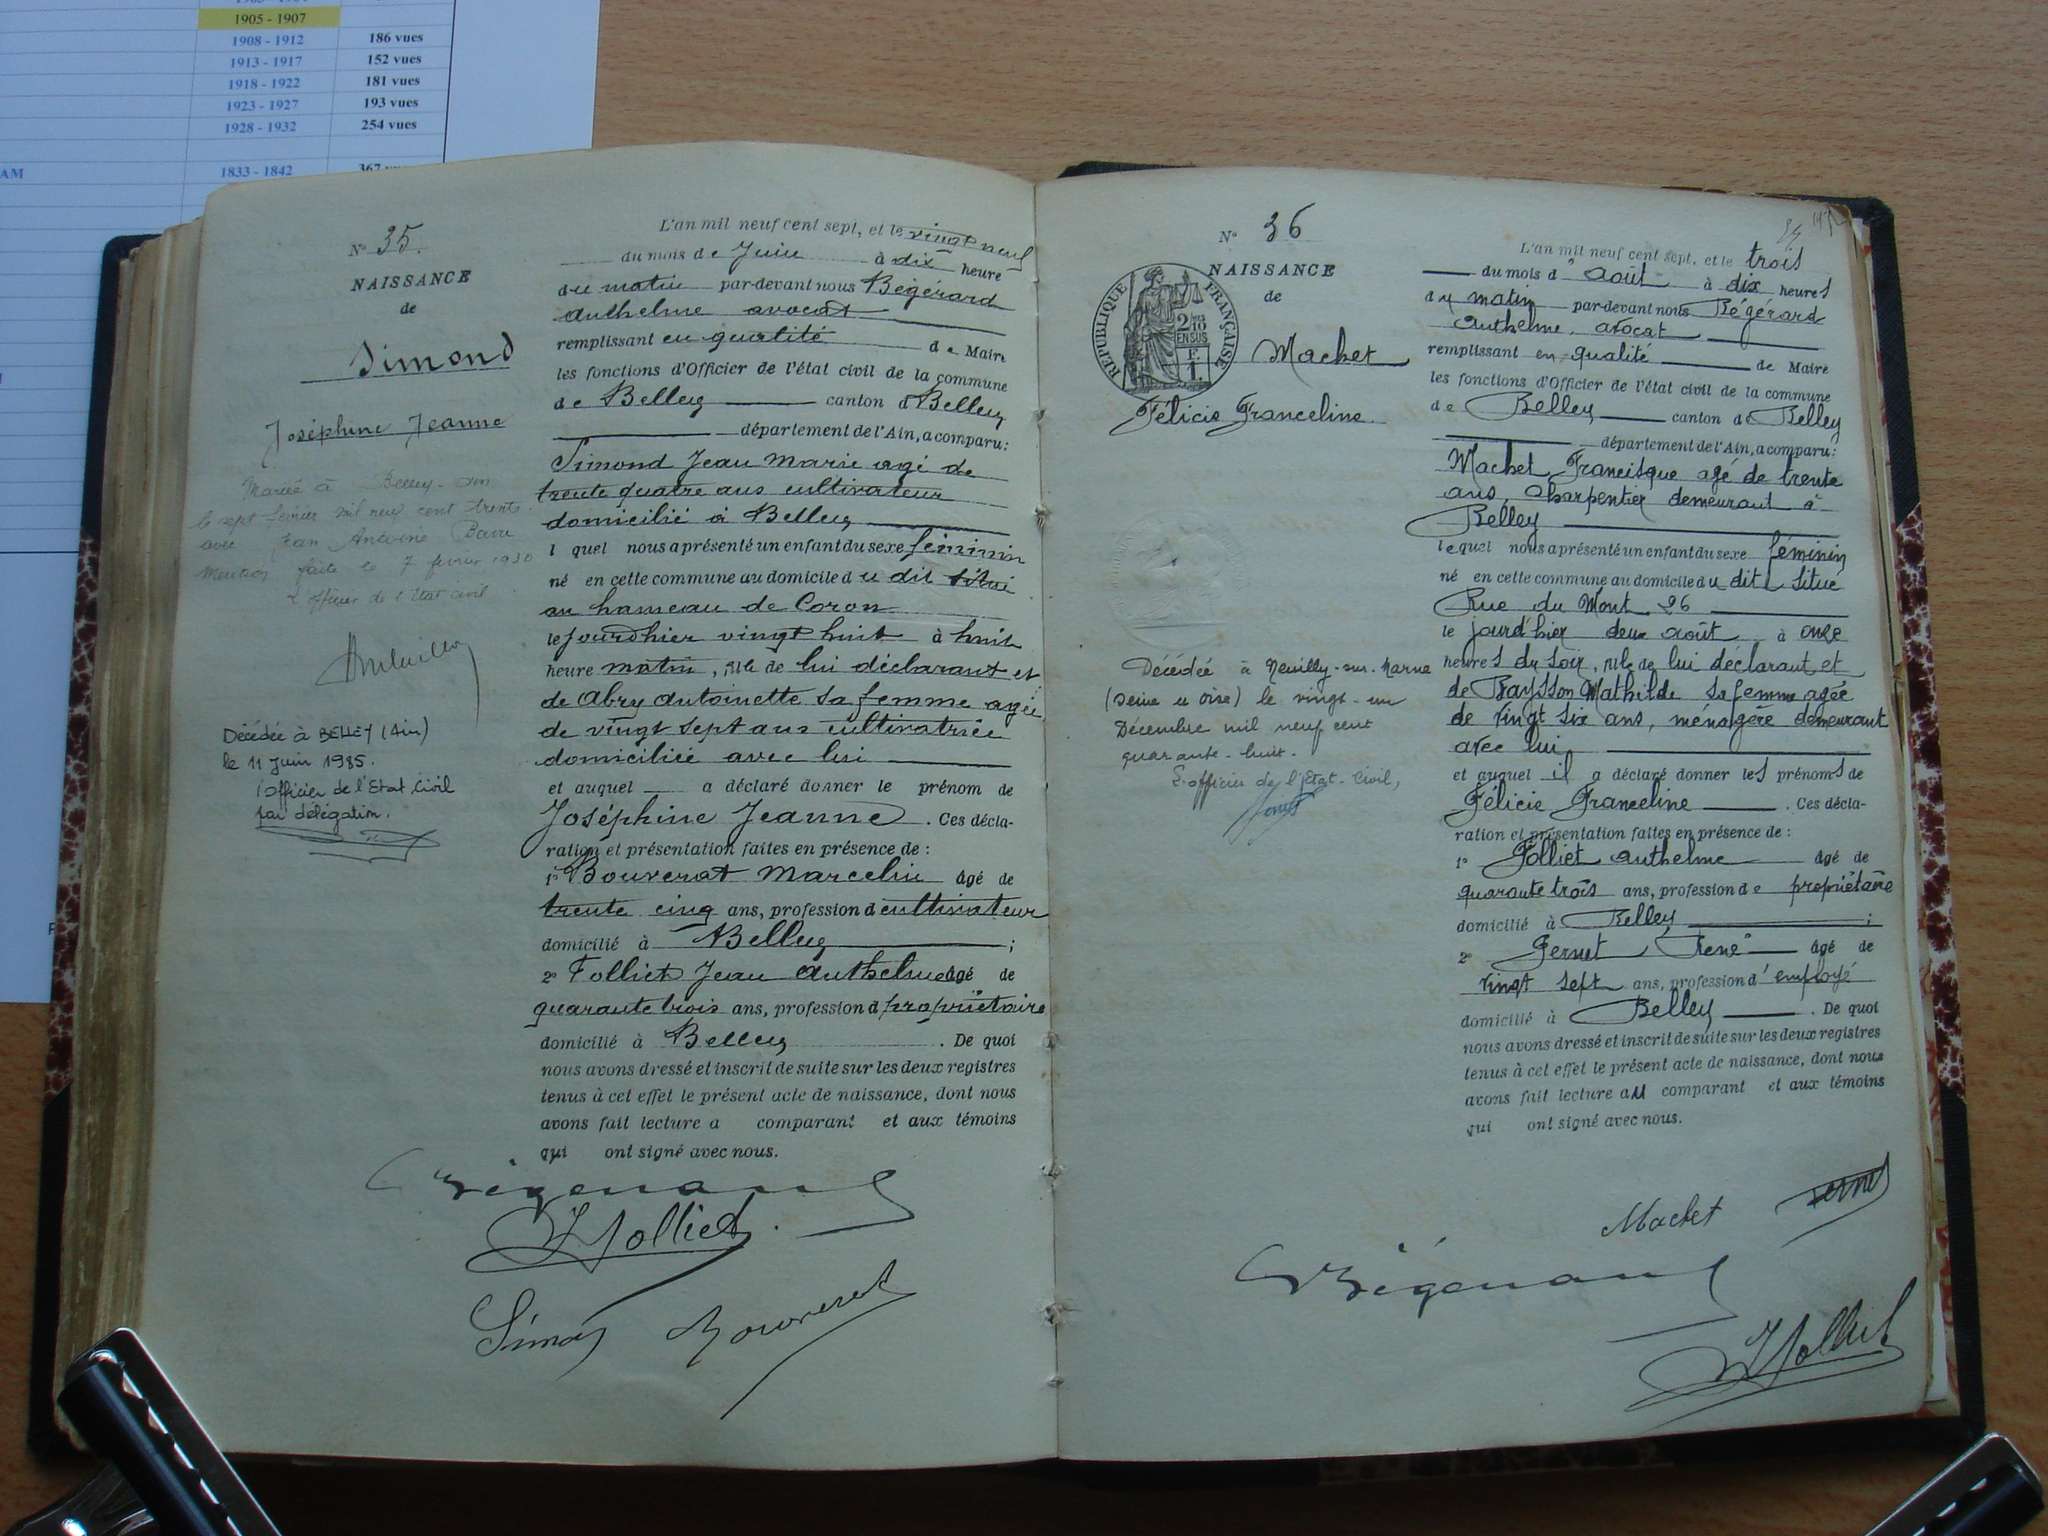 1905 - 1907
1908 - 1912 186 vues
1913 - 1917 152 vues
1918 - 1922 181 vues
1923 - 1927 193 vues
1928 - 1932 254 vues
AM 1833 - 1842 367
N° 35.
NAISSANCE
de
Simond
Joséphine Jeanne
Mariée à Belley - Ain
le sept février mil neuf cent trente
avec Jean Antoine
Mention faite le 7 février 1930
L'officier de l'Etat civil
Décédée à BELLEY (Ain)
le 11 Juin 1985.
l'officier de l'Etat Civil
par délégation.
L'an mil neuf cent sept, et le vingt neuf
du mois de Juin à dix heure
du matin par-devant nous Bégérard
Anthelme avocat
remplissant en qualité de Maire
les fonctions d'Officier de l'état civil de la commune
de Belley canton d Belley
département de l'Ain, a comparu:
Simond Jean Marie agé de
trente quatre ans cultivateur
domicilié à Belley
l quel nous a présenté un enfant du sexe féminin
né en cette commune au domicile du dit situé
au hameau de Coron
le jourdhier vingt huit à huit
heure matin, fille de lui déclarant et
de Abry Antoinette sa femme agée
de vingt sept ans cultivatrice
domiciliée avec lui
et auquel a déclaré donner le prénom de
Joséphine Jeanne. Ces décla-
ration et présentation faites en présence de :
1° Bouverat Marcelin âgé de
trente cinq ans, profession d cultivateur
domicilié à Belley ;
2° Folliet Jean Anthelme âgé de
quarante trois ans, profession d propriétaire
domicilié à Belley. De quoi
nous avons dressé et inscrit de suite sur les deux registres
tenus à cet effet le présent acte de naissance, dont nous
avons fait lecture a comparant et aux témoins
qui ont signé avec nous.
Bégérard
Folliet
Simond Bouverat
N° 36
NAISSANCE
de
RÉPUBLIQUE FRANÇAISE
2/10
EN SUS
F.
1.
Machet
Félicie Franceline
Décédée à Neuilly-sur-Marne
(Seine et Oise) le vingt-un
Décembre mil neuf cent
quarante-huit.
L'officier de l'Etat-Civil,
L'an mil neuf cent sept, et le trois
du mois d'août à dix heures
du matin par-devant nous Bégérard
Anthelme, avocat
remplissant en qualité de Maire
les fonctions d'Officier de l'état civil de la commune
de Belley canton de Belley
département de l'Ain, a comparu:
Machet Francisque agé de trente
ans, charpentier demeurant à
Belley
lequel nous a présenté un enfant du sexe féminin
né en cette commune au domicile du dit situé
Rue du Mont 26
le jourd'hier deux août à onze
heures du soir, fille de lui déclarant et
de Baysson Mathilde sa femme agée
de vingt six ans, ménagère demeurant
avec lui
et auquel il a déclaré donner les prénoms de
Félicie Franceline. Ces décla-
ration et présentation faites en présence de :
1° Folliet Anthelme âgé de
quarante trois ans, profession de propriétaire
domicilié à Belley ;
2° Pernet René âgé de
vingt sept ans, profession d'employé
domicilié à Belley. De quoi
nous avons dressé et inscrit de suite sur les deux registres
tenus à cet effet le présent acte de naissance, dont nous
avons fait lecture au comparant et aux témoins
qui ont signé avec nous.
Machet Pernet
Bégérard
Folliet